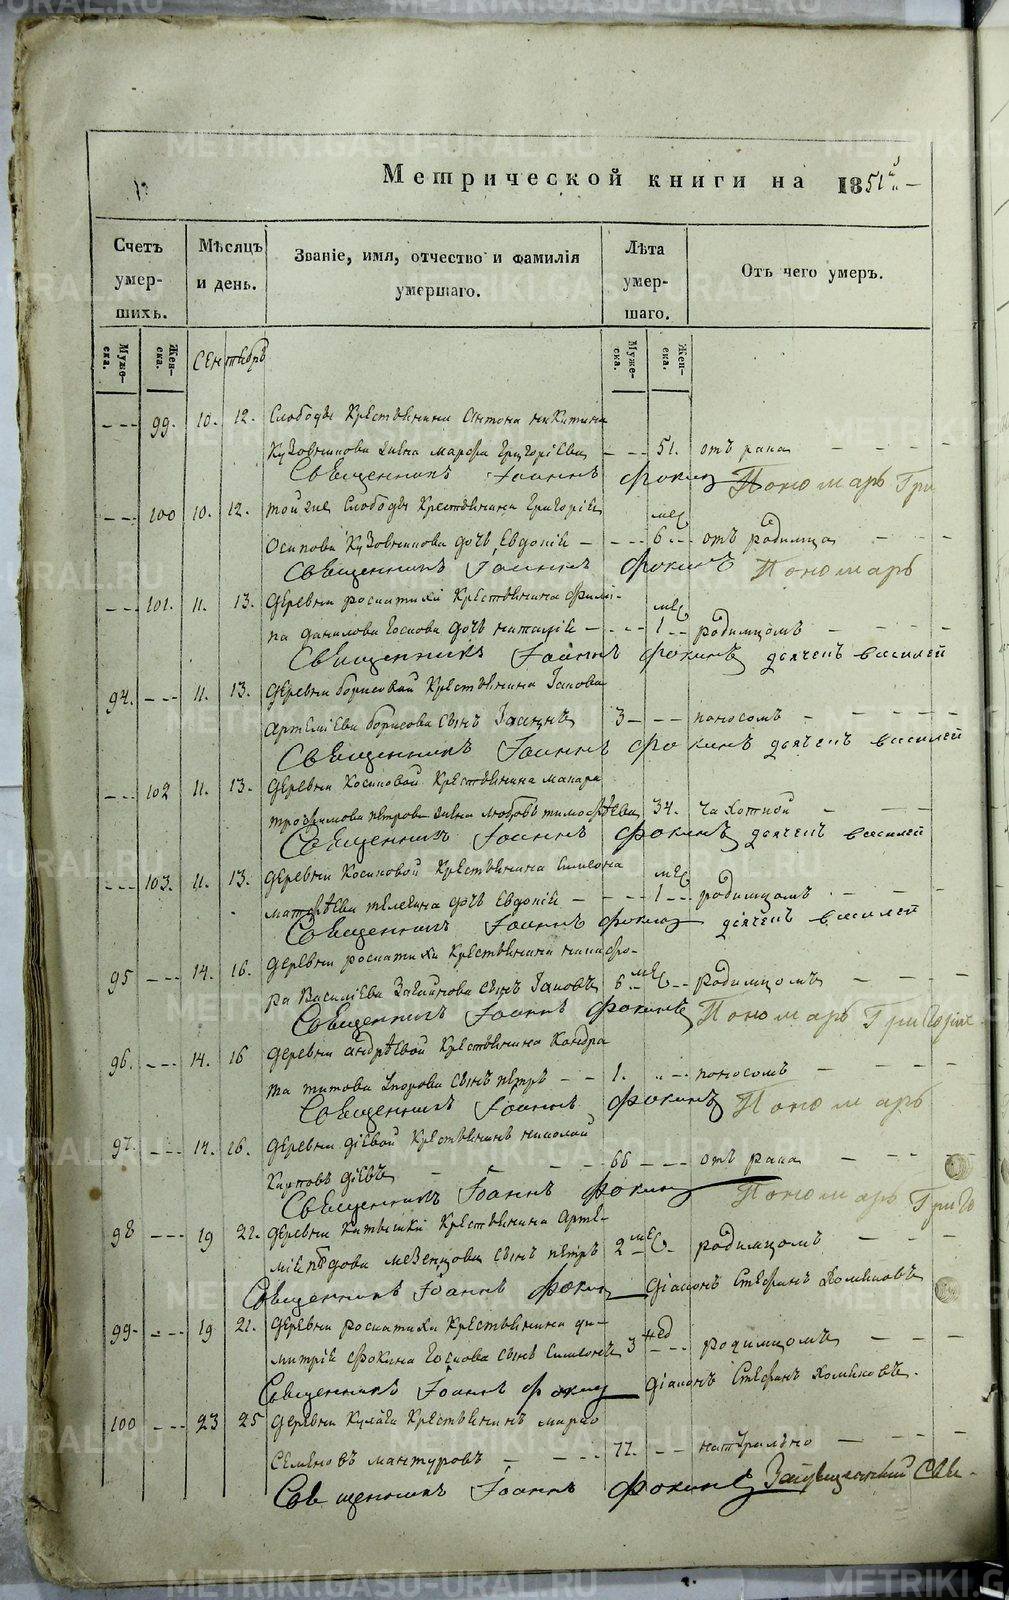 Метрической книги на 1851й
Счетъ умершихъ.
Мѣсяцъ и день.
Званіе, имя, отчество и фамилія умершаго.
Лѣта умершаго.
Отъ чего умеръ.
Мужеска.
Женска.
Сентябрь
Мужеска.
Женска.
99. 10. 12. Слободы Крестьянина Антона Никитина
Кузовникова жена Марфа Григоріева 51. отъ рака
Священникъ Іоаннъ Фокинъ Пономарь Гри
100 10. 12. той же Слободы Крестьянина Григорія
Осипова Кузовникова дочь Евдокія 6 мес отъ родимца
Священникъ Іоаннъ Фокинъ Пономарь
101. 11. 13. Деревни Крестьянина Фили-
па Данилова дочь Наталія 1 мес родимцомъ
Священникъ Іоаннъ Фокинъ дьячекъ Василей
94. 11. 13. Деревни Борисовой Крестьянина Іакова
Артеміева Борисова сынъ Іоаннъ 3 поносомъ
Священникъ Іоаннъ Фокинъ дьячекъ Василей
102 11. 13. Деревни Косиковой Крестьянина Макара
Трофимова Петрова жена Любовь Тимофѣева 34. чахоткой
Священникъ Іоаннъ Фокинъ дьячекъ Василей
103. 11. 13. Деревни Косиковой Крестьянина Симеона
Матфѣева дочь Евдокія 1 мес родимцомъ
Священникъ Іоаннъ Фокинъ дьячекъ Василей
95 14. 16. Деревни Крестьянина Никифо-
ра Василіева сынъ Іаковъ 6 мес родимцомъ
Священникъ Іоаннъ Фокинъ Пономарь Григоріи
96. 14. 16 Деревни Андрѣевой Крестьянина Кондра
та Титова сынъ Петръ 1. поносомъ
Священникъ Іоаннъ Фокинъ Пономарь
97. 14. 16. Деревни Діевой Крестьянинъ Николай
Карповъ Діевъ 66 отъ рака
Священникъ Іоаннъ Фокинъ Пономарь Григо
98 19 22. Деревни Крестьянина Арте-
мія Мезенцова сынъ Петръ 2 мес родимцомъ
Священникъ Іоаннъ Фокинъ Діаконъ Стефанъ Хомяковъ
99. 19 21. Деревни Крестьянина Ди-
митрія Фокина сынъ Симеонъ 3 нед родимцомъ
Священникъ Іоаннъ Фокинъ Діаконъ Стефанъ Хомяковъ.
100 23 25 Деревни Крестьянинъ Марко
Семеновъ Мантуровъ 77. натурально
Священникъ Іоаннъ Фокинъ
METRIKI.GASO-URAL.RU